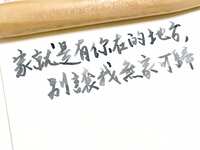 家就是有你在的地方，
别让我无家可归